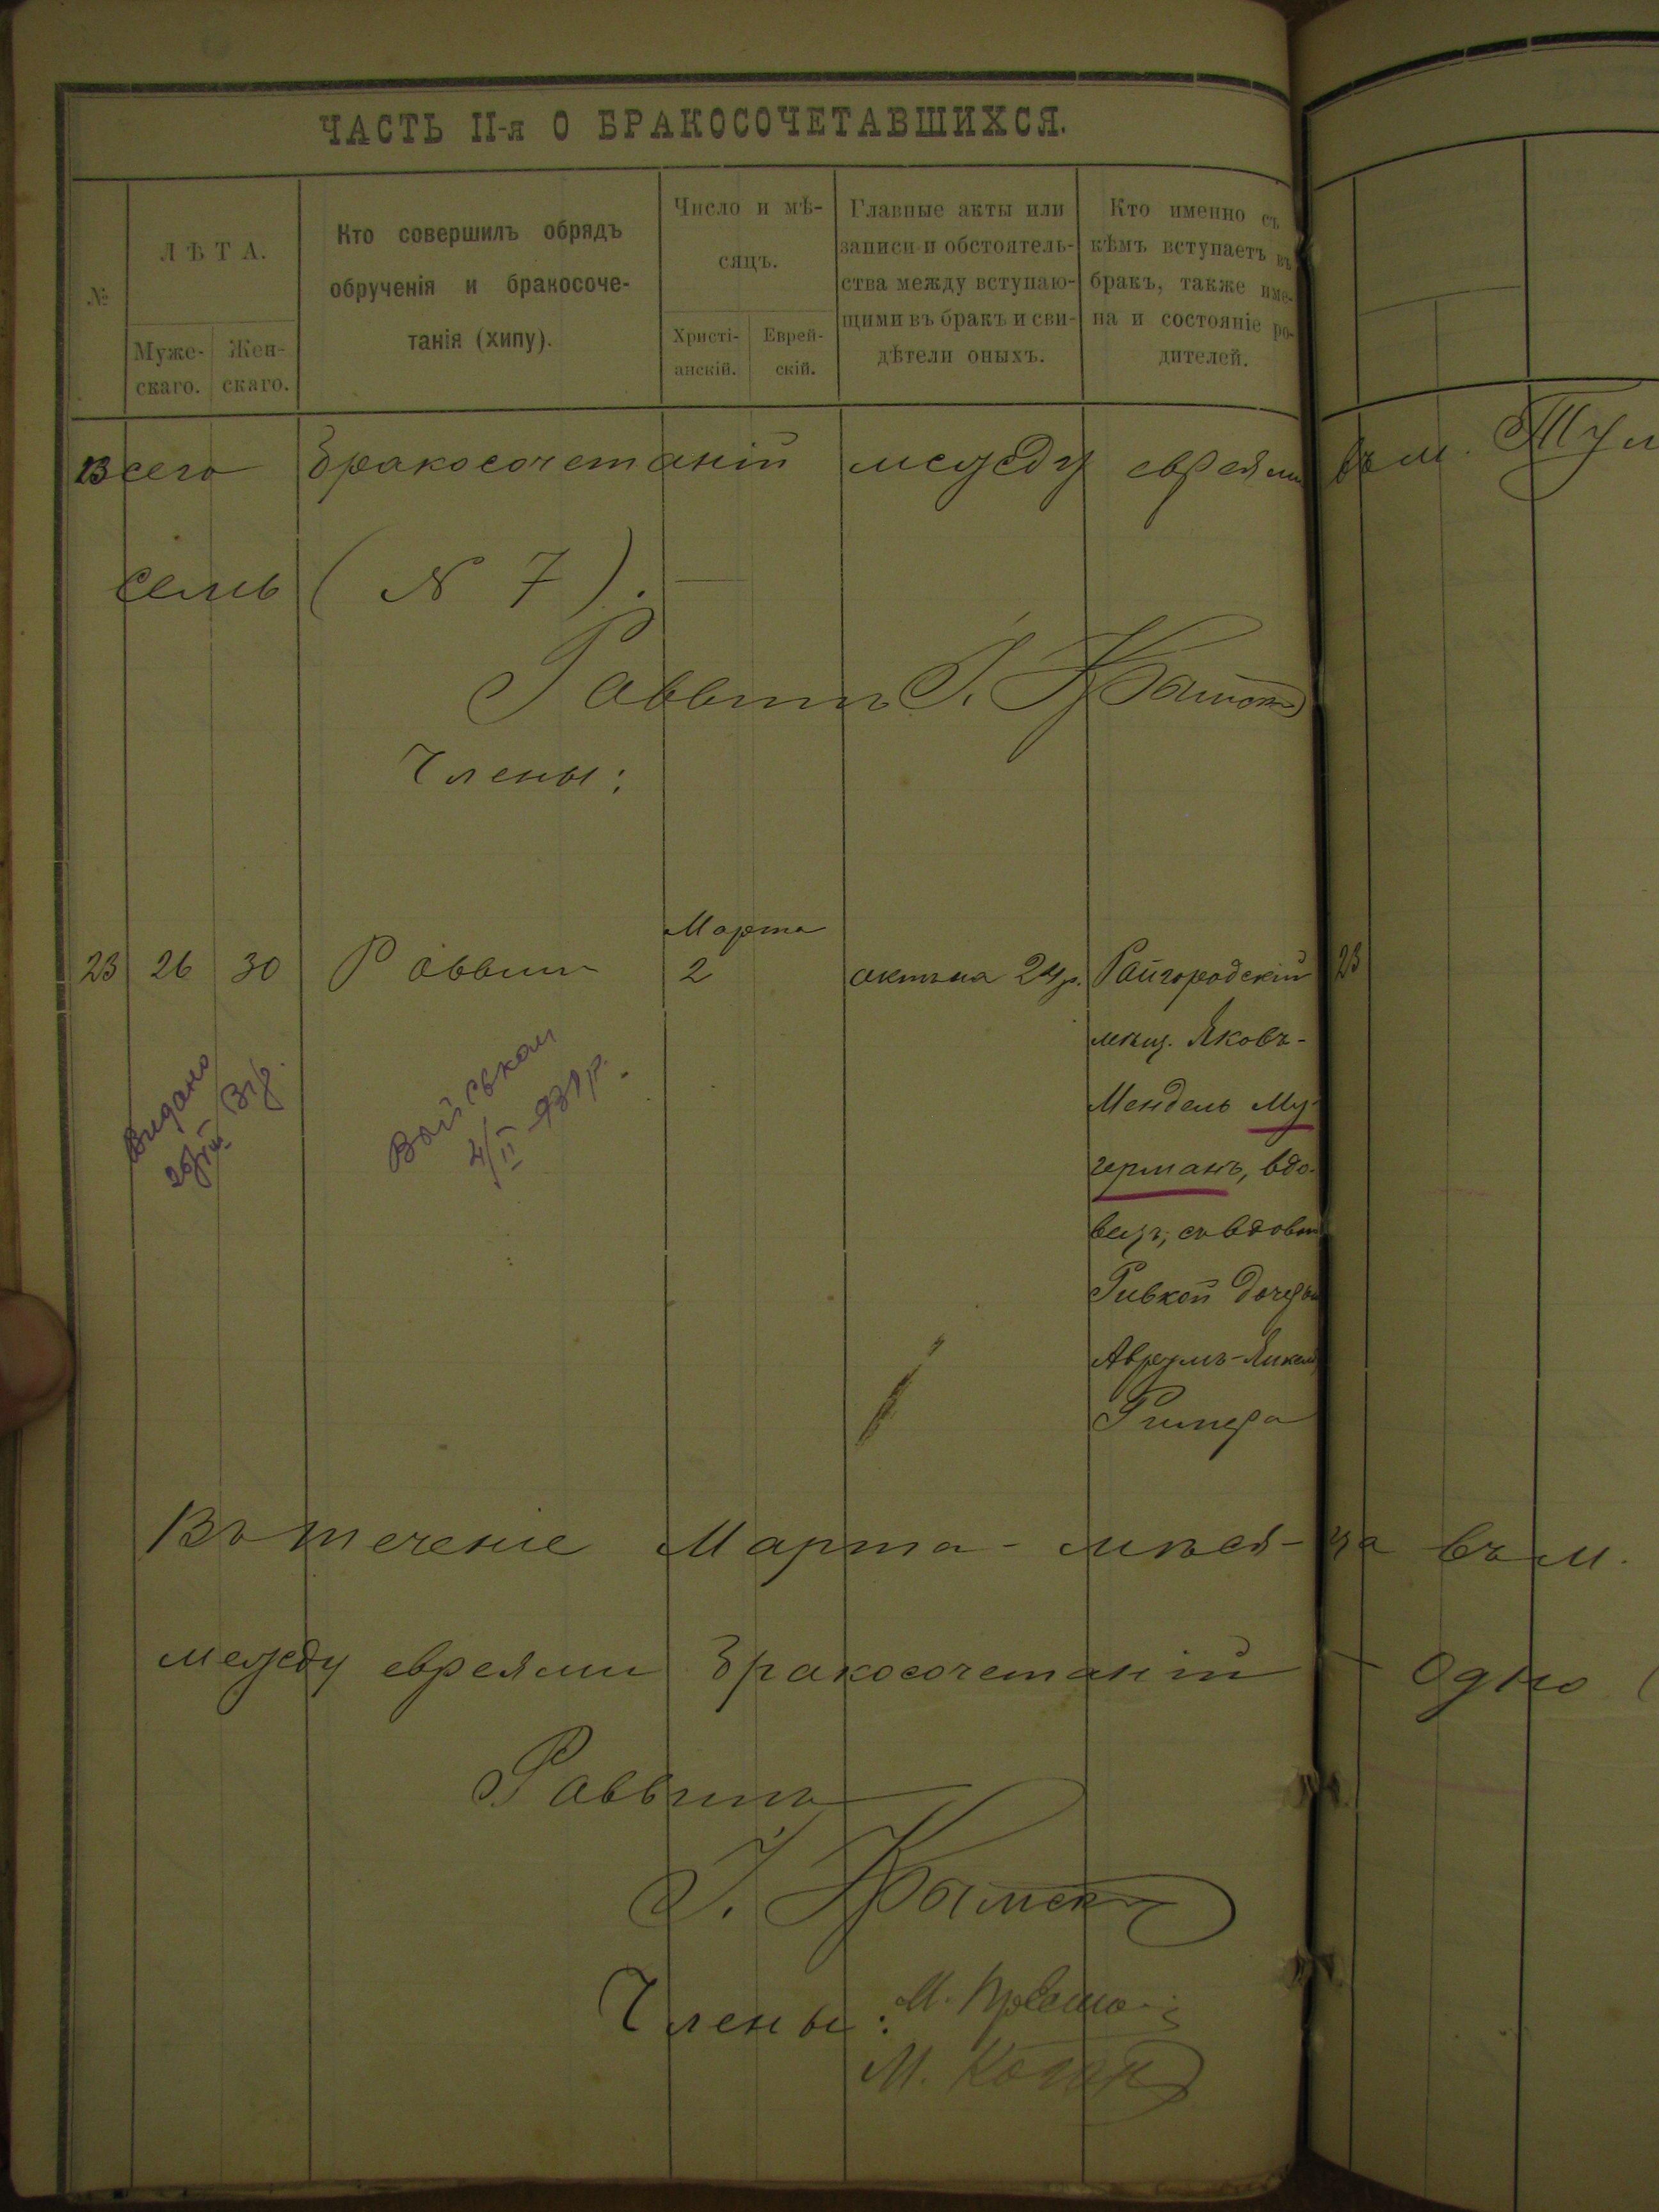 ЧАСТЬ II-я О БРАКОСОЧЕТАВШИХСЯ.
№
ЛѢТА.
Муже-
скаго.
Жен-
скаго.
Кто совершилъ обрядъ
обрученія и бракосоче-
танія (хипу).
Число и мѣ-
сяцъ.
Христі-
анскій.
Еврей-
скій.
Главные акты или
записи и обстоятель-
ства между вступаю-
щими въ бракъ и сви-
дѣтели оныхъ.
Кто именно съ
кѣмъ вступаетъ въ
бракъ, также име-
на и состояніе ро-
дителей.
Всего бракосочетаній между евреями въ м.
семь (N 7).
Раввинъ
Члены:
Марта
23 26 30 Раввин 2 акть на 24 р. Райгородскій 23
мѣщ. Яковъ-
Мендель Му-
черманъ, вдо-
вецъ, съ вдовой
Ривкой дочерью
Аврумъ-
Видано
Військом
4/II 931 р.
Въ теченіе Марта - мѣся- ца въ м.
между евреями бракосочетаній - одно (
Раввинъ
Члены:
М. Коган